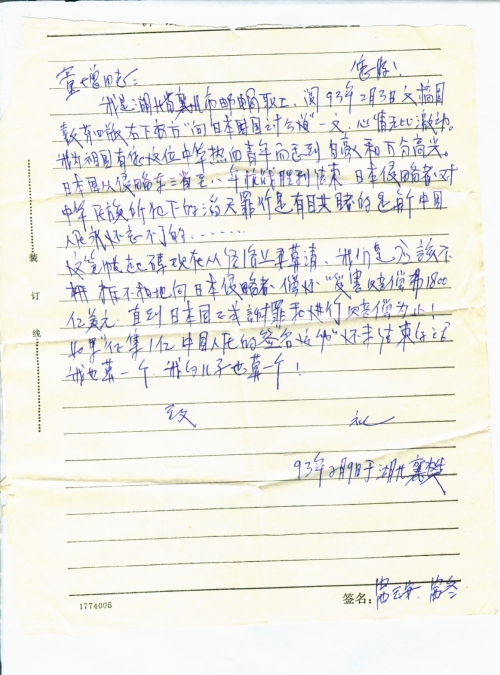 童增同志： 您好！
我是湖北省襄樊市邮电局职工，阅93年2月3日文摘周
报第四版右下部方“向日本国讨公道”一文，心情无比激动。
我为祖国有您这位中华热血青年而感到自豪和万分高兴。
日本国从侵略东三省至八年抗战胜利结束 日本侵略者对
中华民族所犯下的滔天罪行是有目共睹的是前中国
人民永远忘不了的………
这笔帐
我们是应该不
折不扣地向日本侵略者偿还“受害赔偿弗1800
亿美元.直到日本国正式谢罪和进行赔偿为止！
如果“征集1亿中国人民的签名活动”还未结束的话
我也算一个 我的儿子也算一个！
致 礼
93年2月9日于湖北襄樊
装订线
1774005 签名：